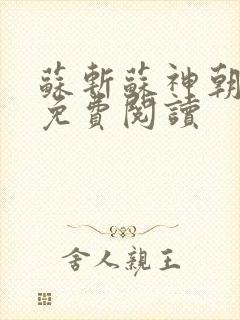 蘇斬蘇神朝
免費閱讀
舍人親王